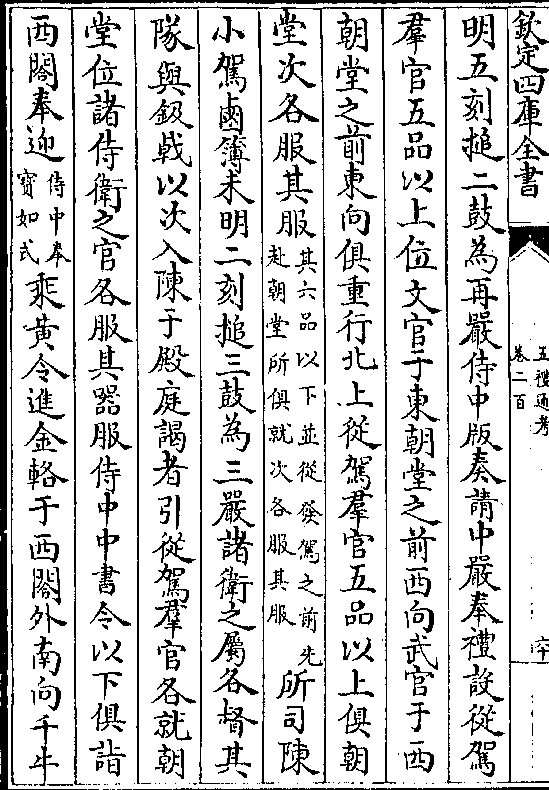 欽定四庫全書
五禮通考
卷二百
六十
明五刻搥二鼓為再嚴侍中版奏請中嚴奉禮設從駕
羣官五品以上位文官于東朝堂之前西向武官于西
朝堂之前東向俱重行北上從駕羣官五品以上俱朝
堂次各服其服其六品以下並從發駕之前先赴朝堂所俱就次各服其服所司陳
小駕鹵簿未明二刻搥三鼓為三嚴諸衛之屬各督其
隊與鈒戟以次入陳于殿庭謁者引從駕羣官各就朝
堂位諸侍衛之官各服其器服侍中中書令以下俱詣
西閤奉迎侍中奉寳如式乘黃令進金輅于西閤外南向千牛